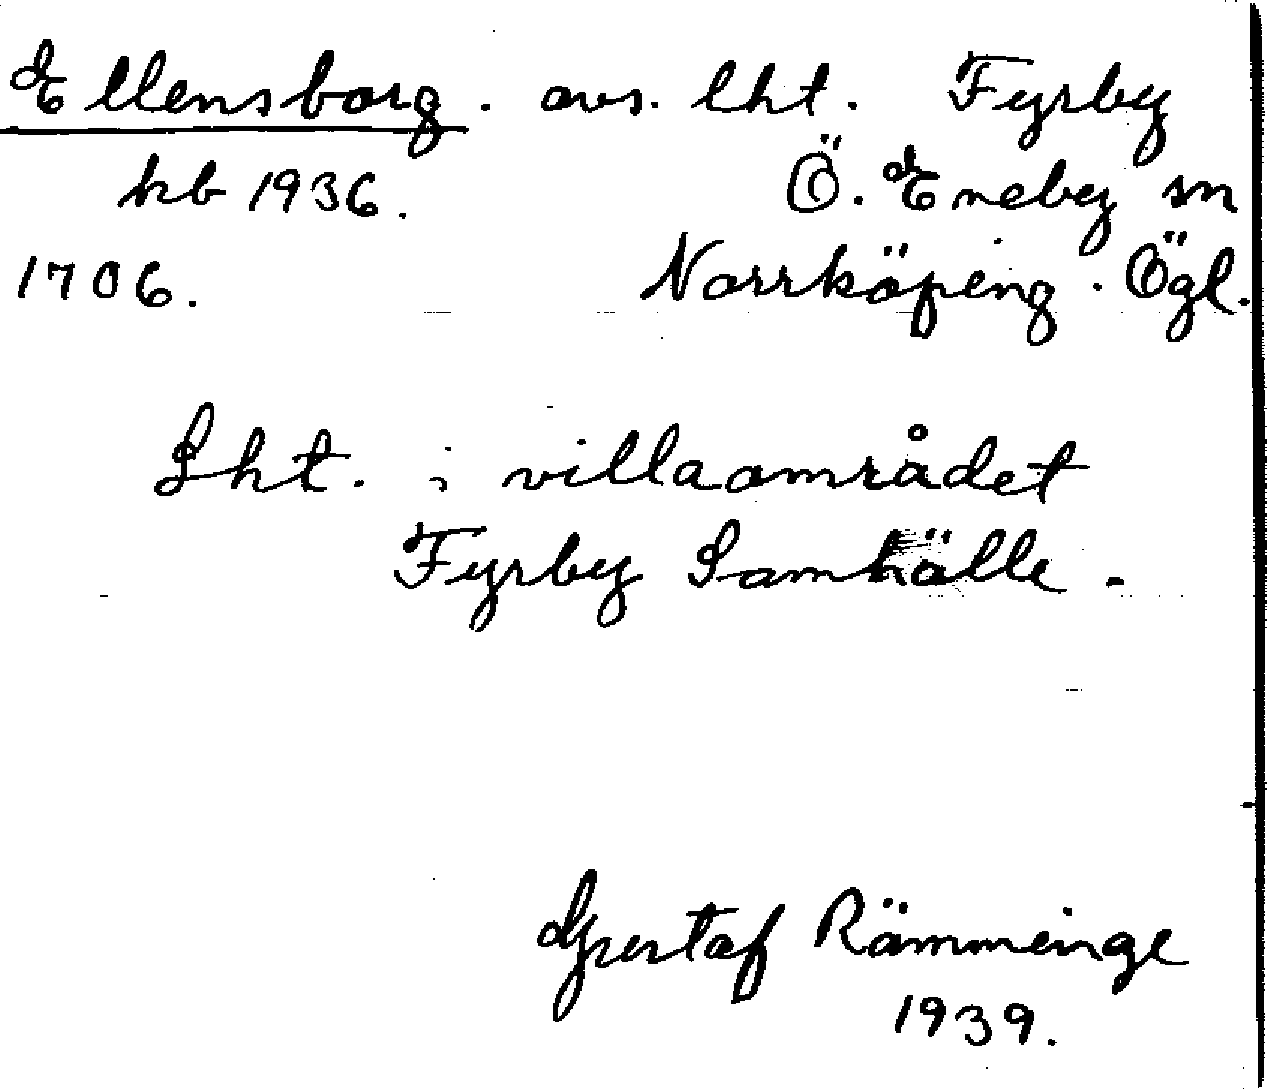 Ellensborg. avs. lht. Fyrby
kb 1936. Ö. Eneby sn
1706. Norrköping. Ögl.
Lht. i villaområdet
Fyrby Samhälle.
Gustaf Rämminge
1939.